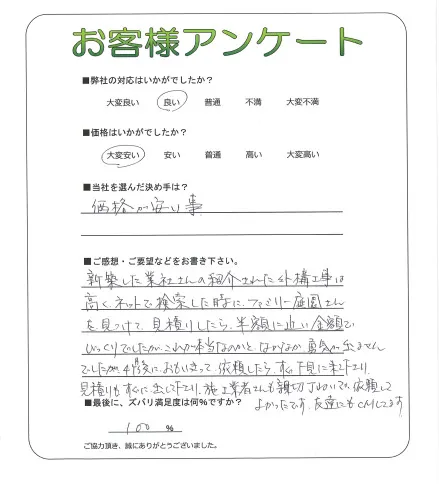 お客様アンケート
■弊社の対応はいかがでしたか？
大変良い 良い 普通 不満 大変不満
■価格はいかがでしたか？
大変安い 安い 普通 高い 大変高い
■当社を選んだ決め手は？
価格が安い事
■ご感想・ご要望などをお書き下さい。
新築した業社さんの紹介された外構工事は
高く、ネットで検索した時に、ファミリー庭園さん
を見つけて、見積りしたら、半額に近い金額で
びっくりでしたが、これが本当なのかと、なかなか勇気が出ません
でしたが、後に、おもいきって、依頼したら、すぐ下見に来て下さり
見積りもすぐに出して下さり、施工業者さんも親切丁ねいで、依頼して
よかったです。友達にもCMしてます
■最後に、ズバリ満足度は何%ですか？
100 %
ご協力頂き、誠にありがとうございました。